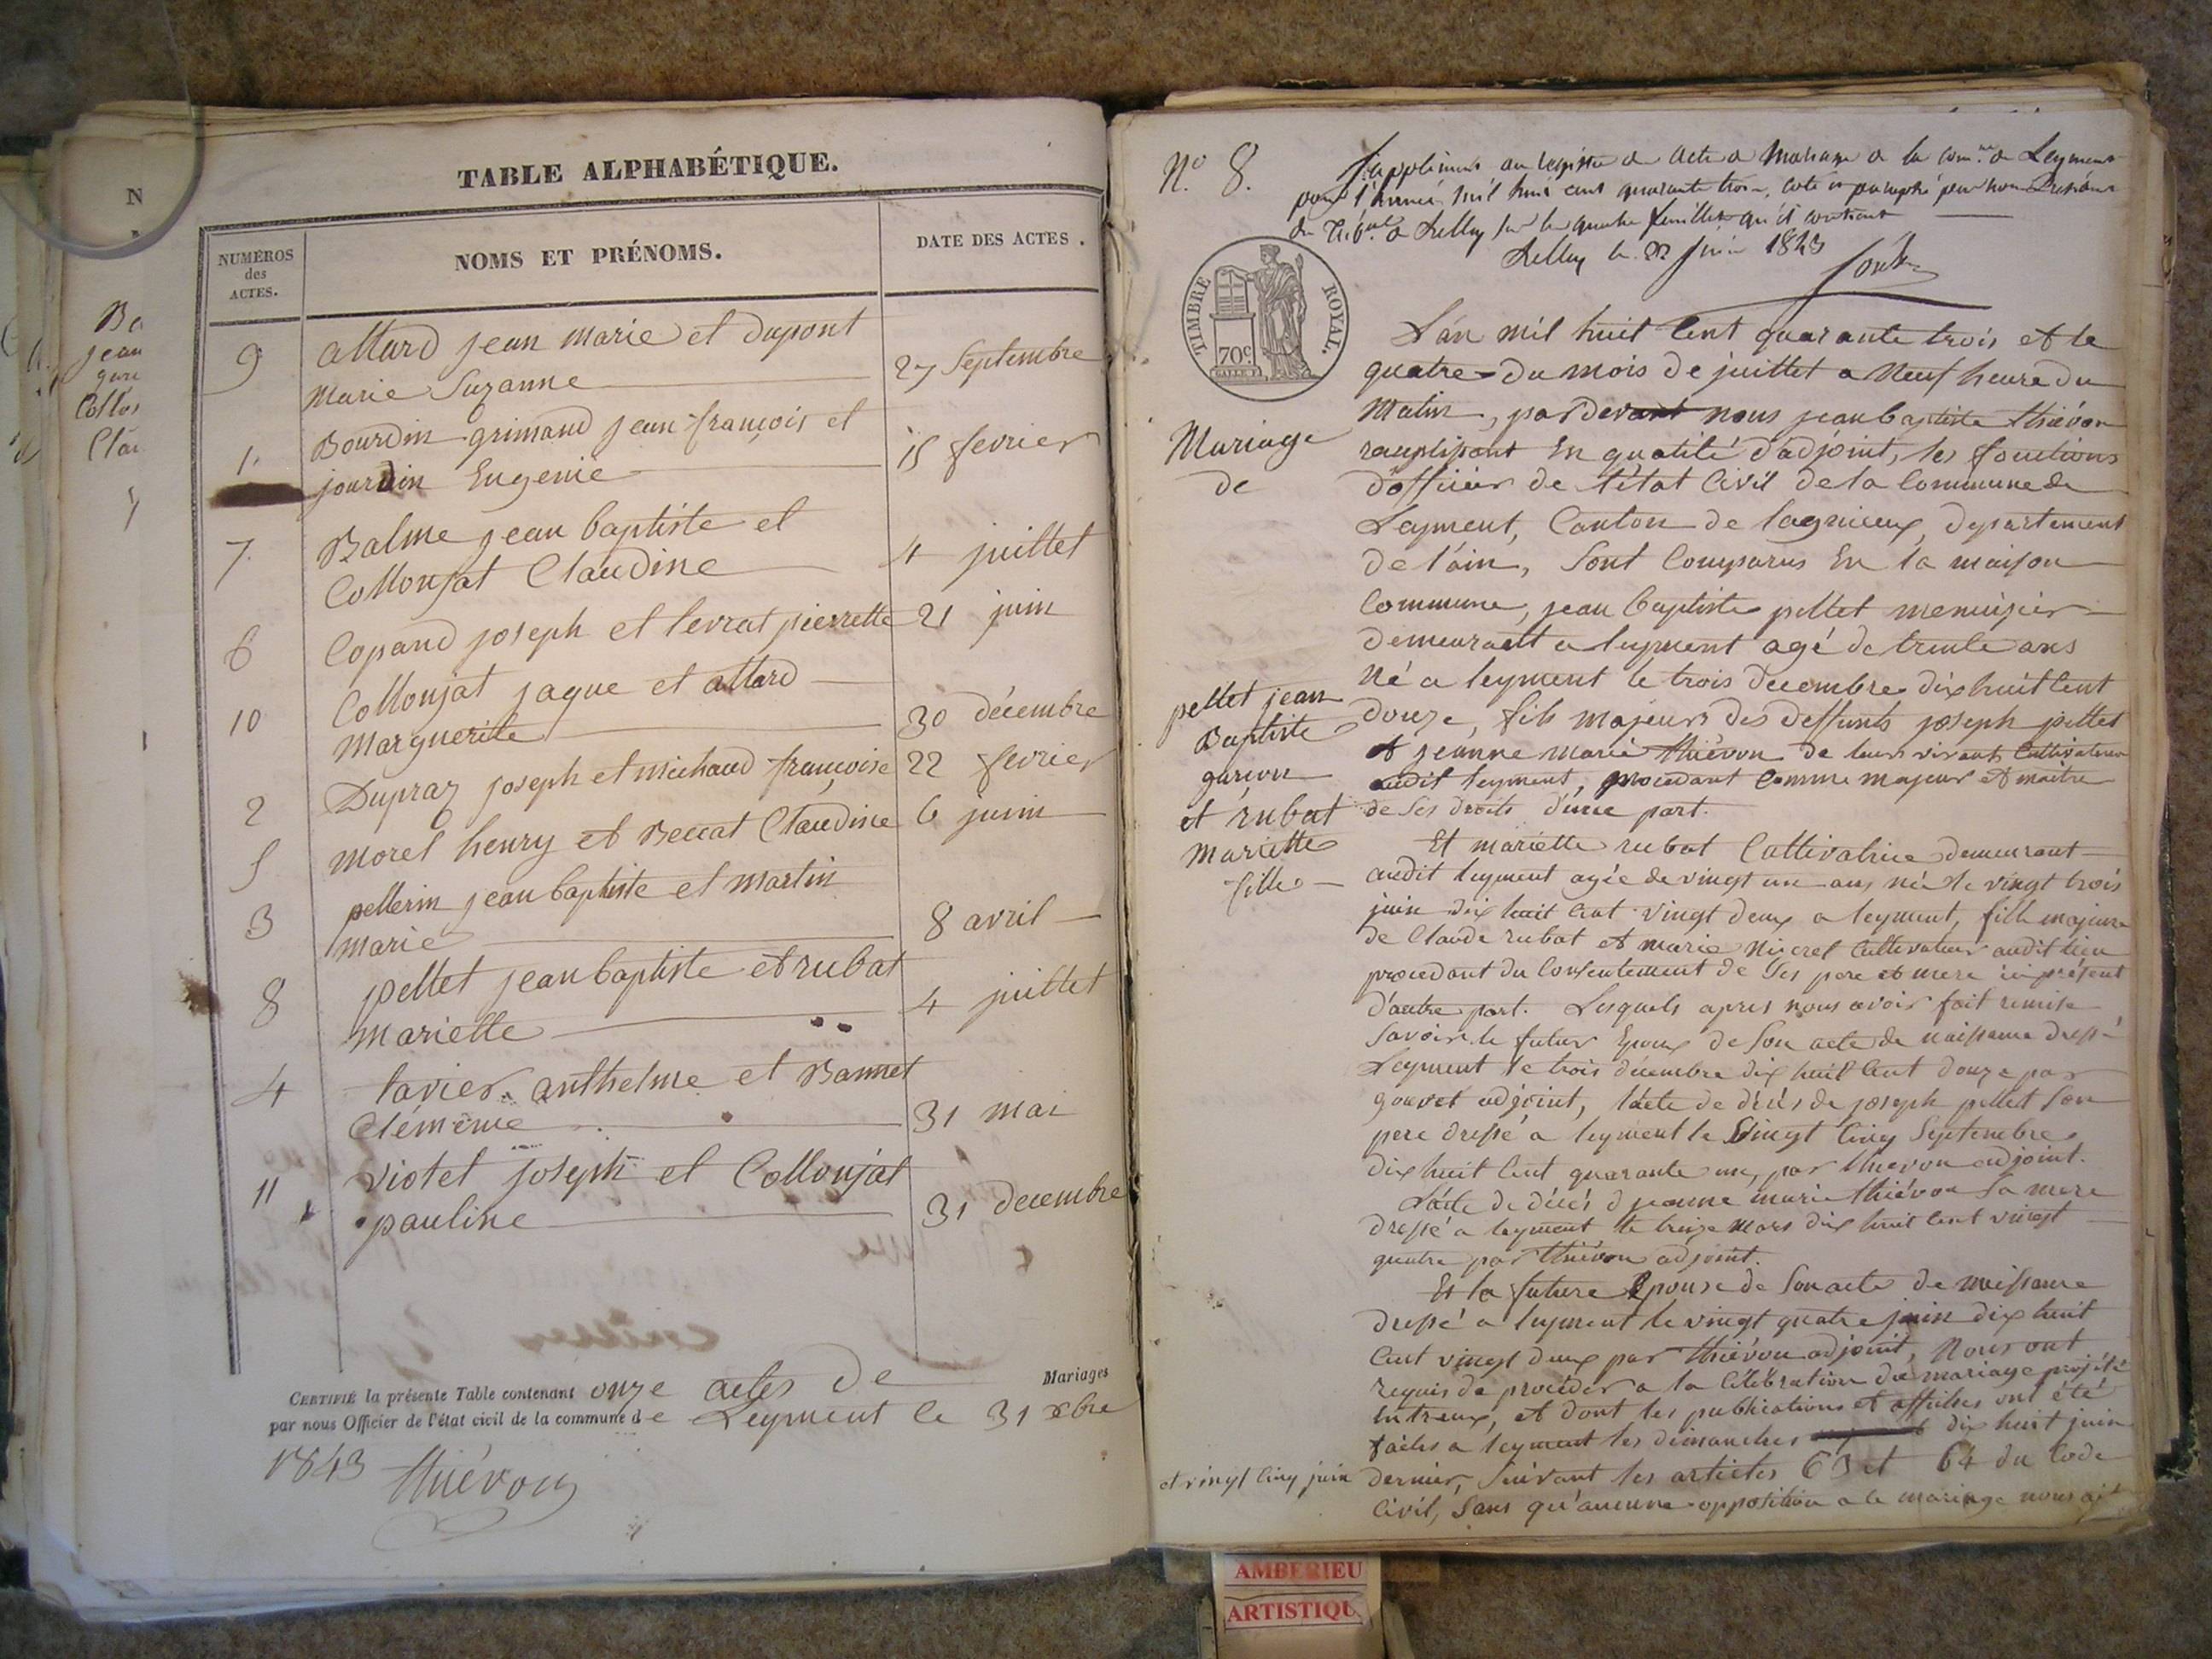 TABLE ALPHABÉTIQUE.
NUMÉROS
des
ACTES.
NOMS ET PRÉNOMS.
DATE DES ACTES.
9 allard jean marie et dupont
Marie Suzanne 27 Septembre
1. Bourdin grimaud jean françois et
jourdin Eugenie 15 fevrier
7. Balme jean baptiste et
Collonjat Claudine 4 juillet
6 Copand joseph et levrat pierrette 21 juin
10 Collonjat jaque et allard
Marguerite 30 décembre
2 Dupraz joseph et michaud françoise 22 fevrier
5 Morel henry et Beccat Claudine 6 juin
3 pellerin jean baptiste et martin
marie 8 avril
8 pellet jean baptiste et rubat
Mariette 4 juillet
4 tavier anthelme et Bonnet
Clémence 31 mai
11 violet joseph et Collonjat
pauline 31 decembre
CERTIFIÉ la présente Table contenant onze actes de Mariages
par nous Officier de l'état civil de la commune de Leyment le 31 xbre
1843 thiévon
N
Be
jean
Collo
Clau
N.º 8. Supplément au registre de acte de Mariage de la com.ne de Leyment
pour l'année mil huit cent quarante trois, coté et paraphé par nous Président
du Trib.al de Belley sur les quatre feuillets qu'il contient
Belley le 22 juin 1843
TIMBRE ROYAL.
70c.
L'an mil huit Cent quarante trois et le
quatre du mois de juillet a Neuf heure du
Matin, pardevant nous jean baptiste thiévon
ramplissant En qualité d'adjoint, les fonctions
d'officier de l'état Civil de la Commune de
Leyment, Canton de lagnieux, departement
de l'ain, Sont Comparus En la maison
Commune, jean baptiste pellet menuisier
demeurant a leyment agé de trente ans
Né a leyment le trois decembre dix huit Cent
douze, fils majeur des deffunts joseph pellet
et jeanne marie thiévon de leurs vivants Cultivateurs
audit leyment, procedant Comme majeur et maitre
de Ses droits d'une part.
Mariage
de
pellet jean
Baptiste
garçon
et rubat
Mariette
fille
Et mariette rubat Cultivatrice demeurant
audit leyment agée de vingt un ans née le vingt trois
juin dix huit Cent vingt deux a leyment, fille majeure
de Claude rubat et marie Cultivateurs audit lieu
procedant du Consentement de Ses pere et mere ici présent
d'autre part. Lesquels apres nous avoir fait remise
Savoir le futur Epoux de Son acte de naissance dressé
Leyment le trois décembre dix huit Cent douze par
gouvet adjoint, l'acte de décés de joseph pellet Son
pere dressé a leyment le vingt Cinq Septembre
dix huit Cent quarante un, par thiévon adjoint.
L'acte de décés d jeanne marie thiévon Sa mere
dressé a leyment le treize Mars dix huit Cent vingt
quatre par thiévon adjoint.
Et la future Epouse de Son acte de naissance
dressé a leyment le vingt quatre juin dix huit
Cent vingt deux par thiévon adjoint, Nous ont
requis de procéder a la Célébration du mariage projété
Entreux, et dont les publications et affiches ont été
faites a leyment les dimanches dix huit juin
et vingt Cinq juin dernier, Suivant les articles 63 et 64 du Code
Civil, Sans qu'aucune opposition a le mariage nous ait
AMBERIEU
ARTISTIQU